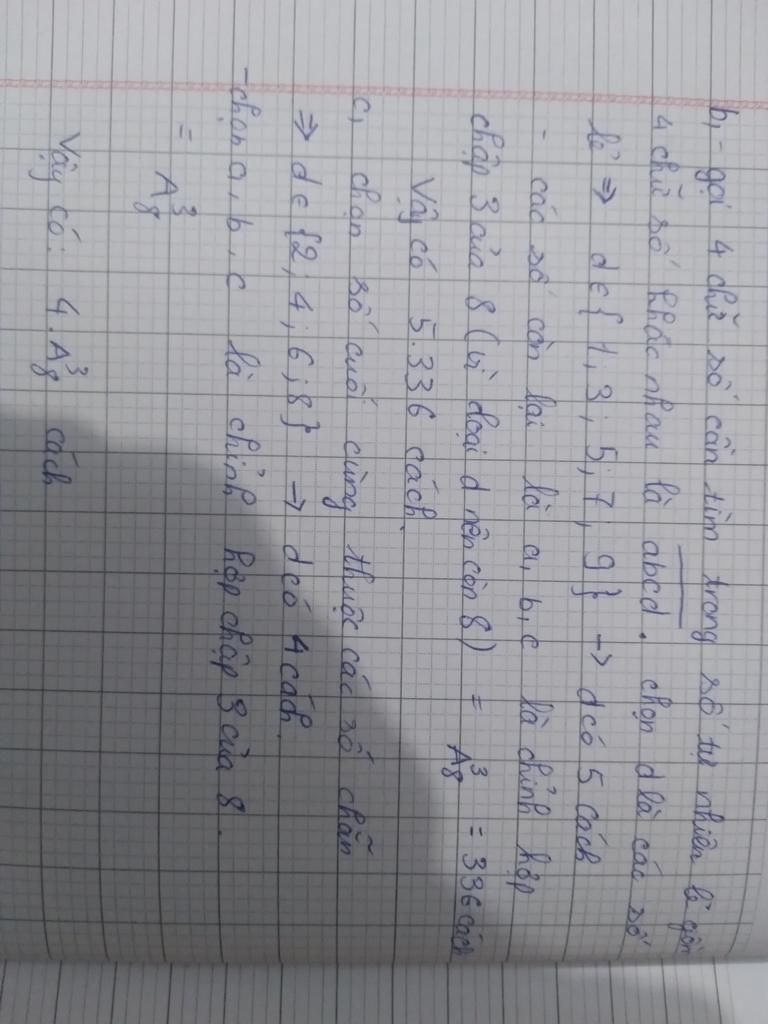 b, - gọi 4 chữ số cần tìm trong số tự nhiên lẻ gồm
4 chữ số khác nhau là abcd. chọn d là các số
lẻ ⇒ d ∈ {1; 3; 5; 7; 9} → d có 5 cách
- các số còn lại là a, b, c là chỉnh hợp
chập 3 của 8 (vì đoại d nên còn 8) = A³₈ = 336 cách
Vậy có 5.336 cách.
c, chọn số cuối cùng thuộc các số chẵn
⇒ d ∈ {2; 4; 6; 8} → d có 4 cách.
- chọn a, b, c là chỉnh hợp chập 3 của 8.
= A³₈
Vậy có: 4.A³₈ cách